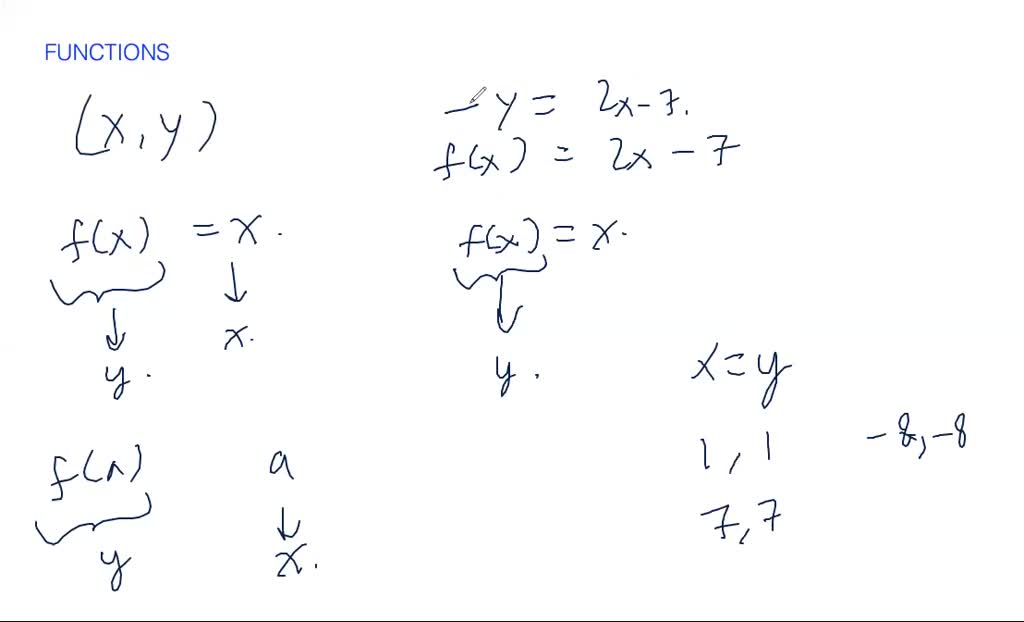 FUNCTIONS
(x, y)
y = 2x - 7.
f(x) = 2x - 7
f(x) = x.
y.
x.
f(x) = x.
y.
x = y
1, 1
7, 7
-8, -8
f(a)
y
a
x.